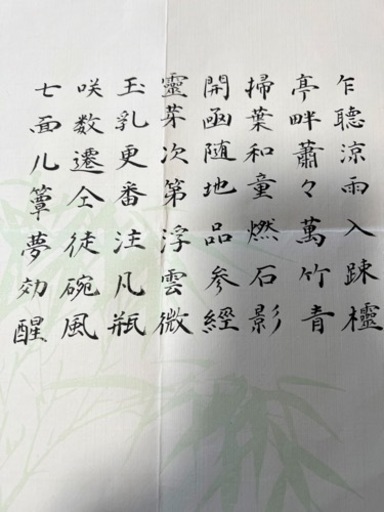 乍聽涼雨入踈櫺
亭畔蕭々萬竹青
掃葉和童燃石影
開函随地品參經
靈芽次第浮雲微
玉乳更番注凡瓶
咲数遷仝徒碗風
七面儿簟夢効醒